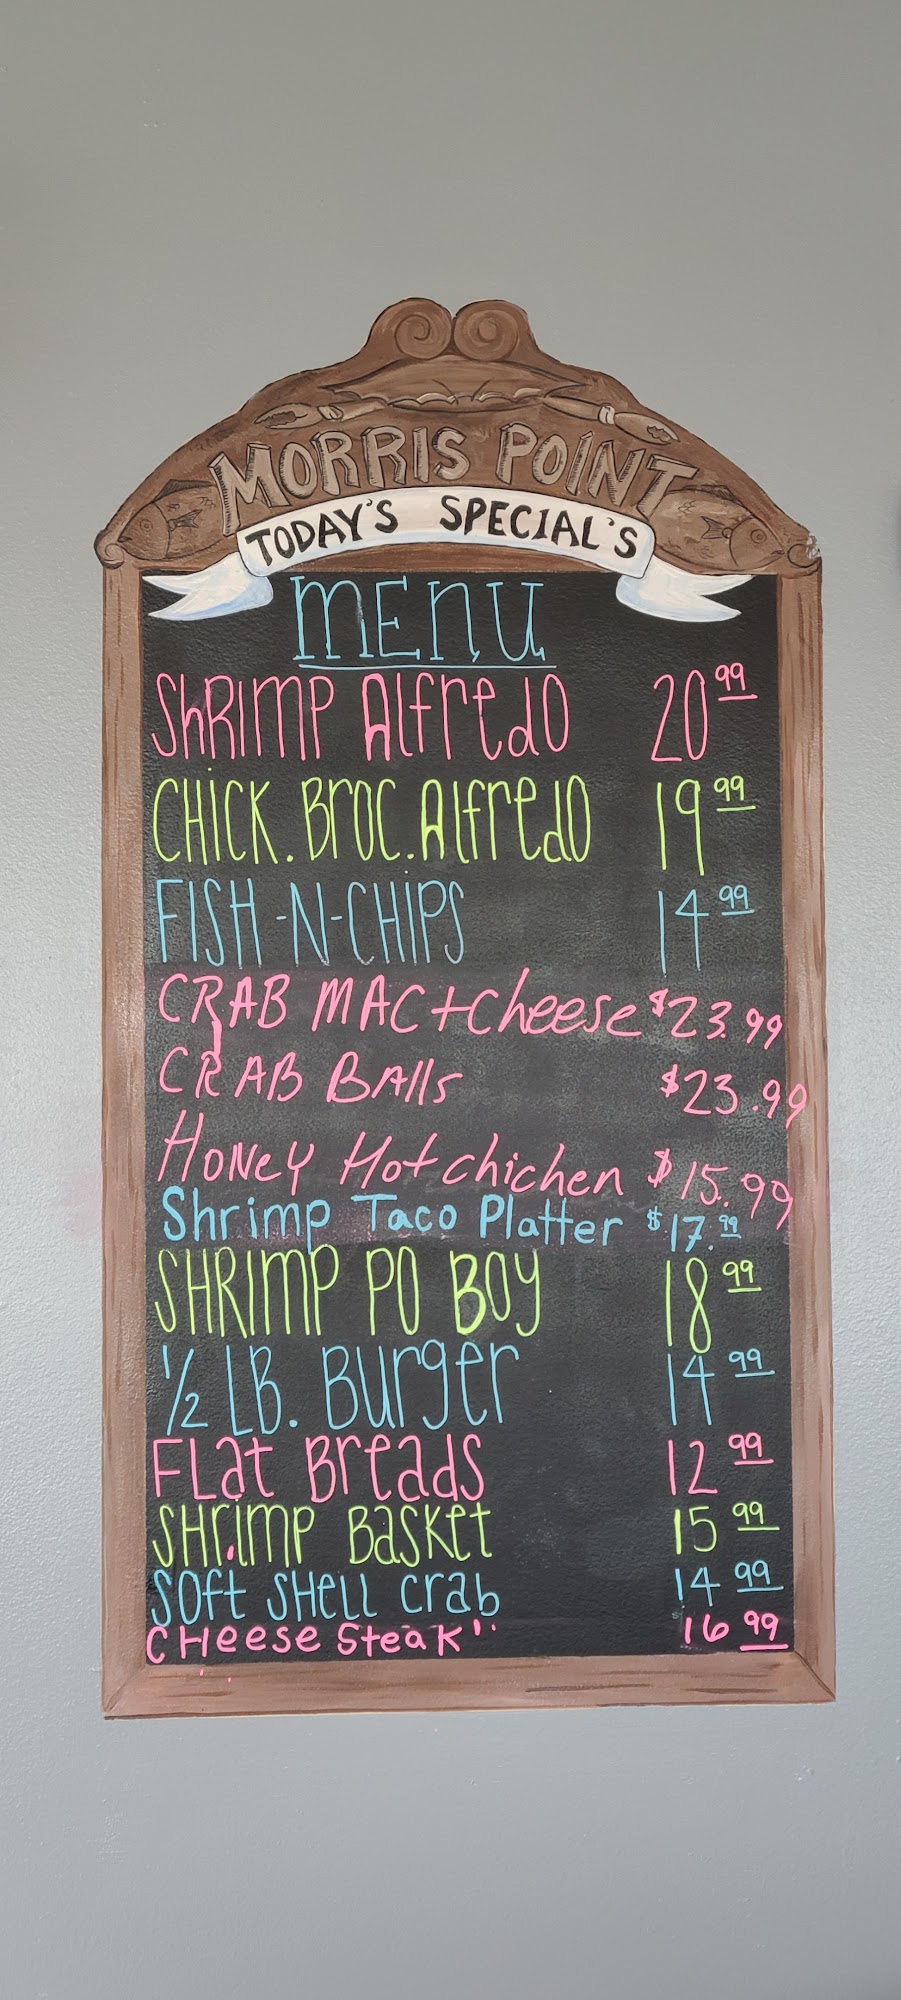 MORRIS POINT
TODAY'S SPECIAL'S
MENU
SHRIMP AlfredO 20 99
CHICK. BrOC. AlfredO 19 99
FISH-N-CHIPS 14 99
CRAB MAC+Cheese $23.99
CRAB BAlls $23.99
HONey Hot chichen $15.99
Shrimp Taco Platter $17.99
SHRIMP PO BOy 18 99
1/2 LB. Burger 14 99
FLat Breads 12 99
SHrimp Basket 15 99
SOft SHell crab 14 99
CHeese Steak" 16 99